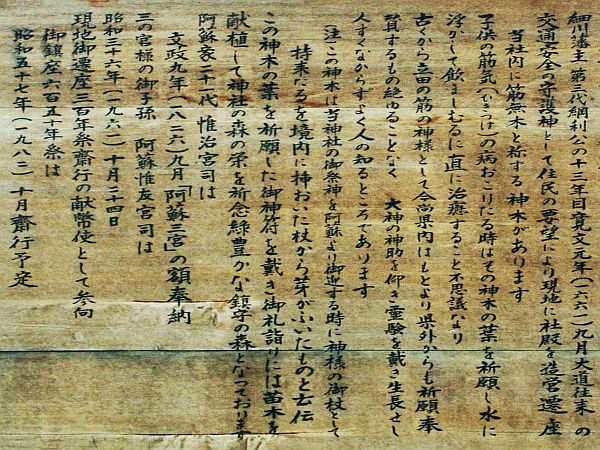 細川藩主 第三代綱利公の十三年目寛文元年(一六六一)九月大道往来の
交通安全の守護神として住民の要望により現地に社殿を造営遷座
当社内に筋無木と称する神木があります
子供の筋気(かうけ)の病おこりたる時はその神木の葉を祈願し水に
浮かして飲ましむるに直に治癒すること不思議なり
古くから三田の筋の神様として今尚県内はもとより県外からも祈願奉
賛するもの絶ゆることなく 大神の神助を仰き霊験を戴き生長せし
人すくなからずよく人の知るところであります
(注 この神木は当神社の御祭神を阿蘇より御迎する時に神様の御杖として
持来たるを境内に挿おいた杖から芽がふいたものと云伝
この神木の葉を祈願した御神符を戴き御礼詣りには苗木を
献植して神社の森の栄を祈念緑豊かな鎮守の森となっております
阿蘇家二十一代 惟治宮司は
文政九年(一八二六)九月「阿蘇三宮」の額奉納
三の宮様の御子孫 阿蘇惟友宮司は
昭和三十六年(一九六一)十月二十四日
現地御遷座三百年祭齋行の献幣使として参向
御鎮座六百五十年祭は
昭和五十七年(一九八二)十月齋行予定